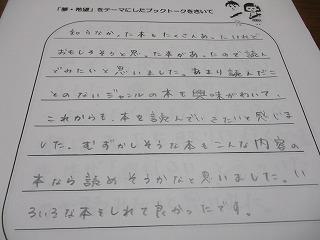 「夢・希望」をテーマにしたブックトークをきいて
知らなかった本もたくさんあったけれど
おもしろそうと思った本があったので読ん
でみたいと思いました。あまり読んだこ
とのないジャンルの本も興味がわいて、
これからも、本を読んでいきたいと感じま
した。むずかしそうな本もこんな内容の
本なら読めそうかなと思いました。い
ろいろな本をしれて良かったです。